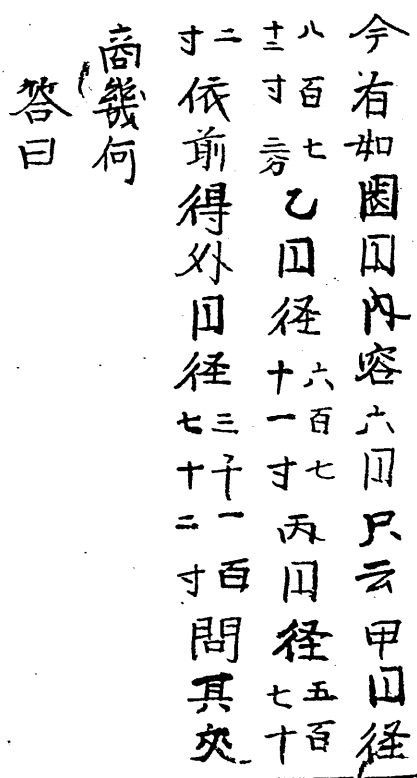 今有如圖円内容六円只云甲円径
八百七十二寸三分乙円径六百七十一寸丙円径五百七十
二寸依前得外円径三千一百七十二寸問其夾
商幾何
答曰